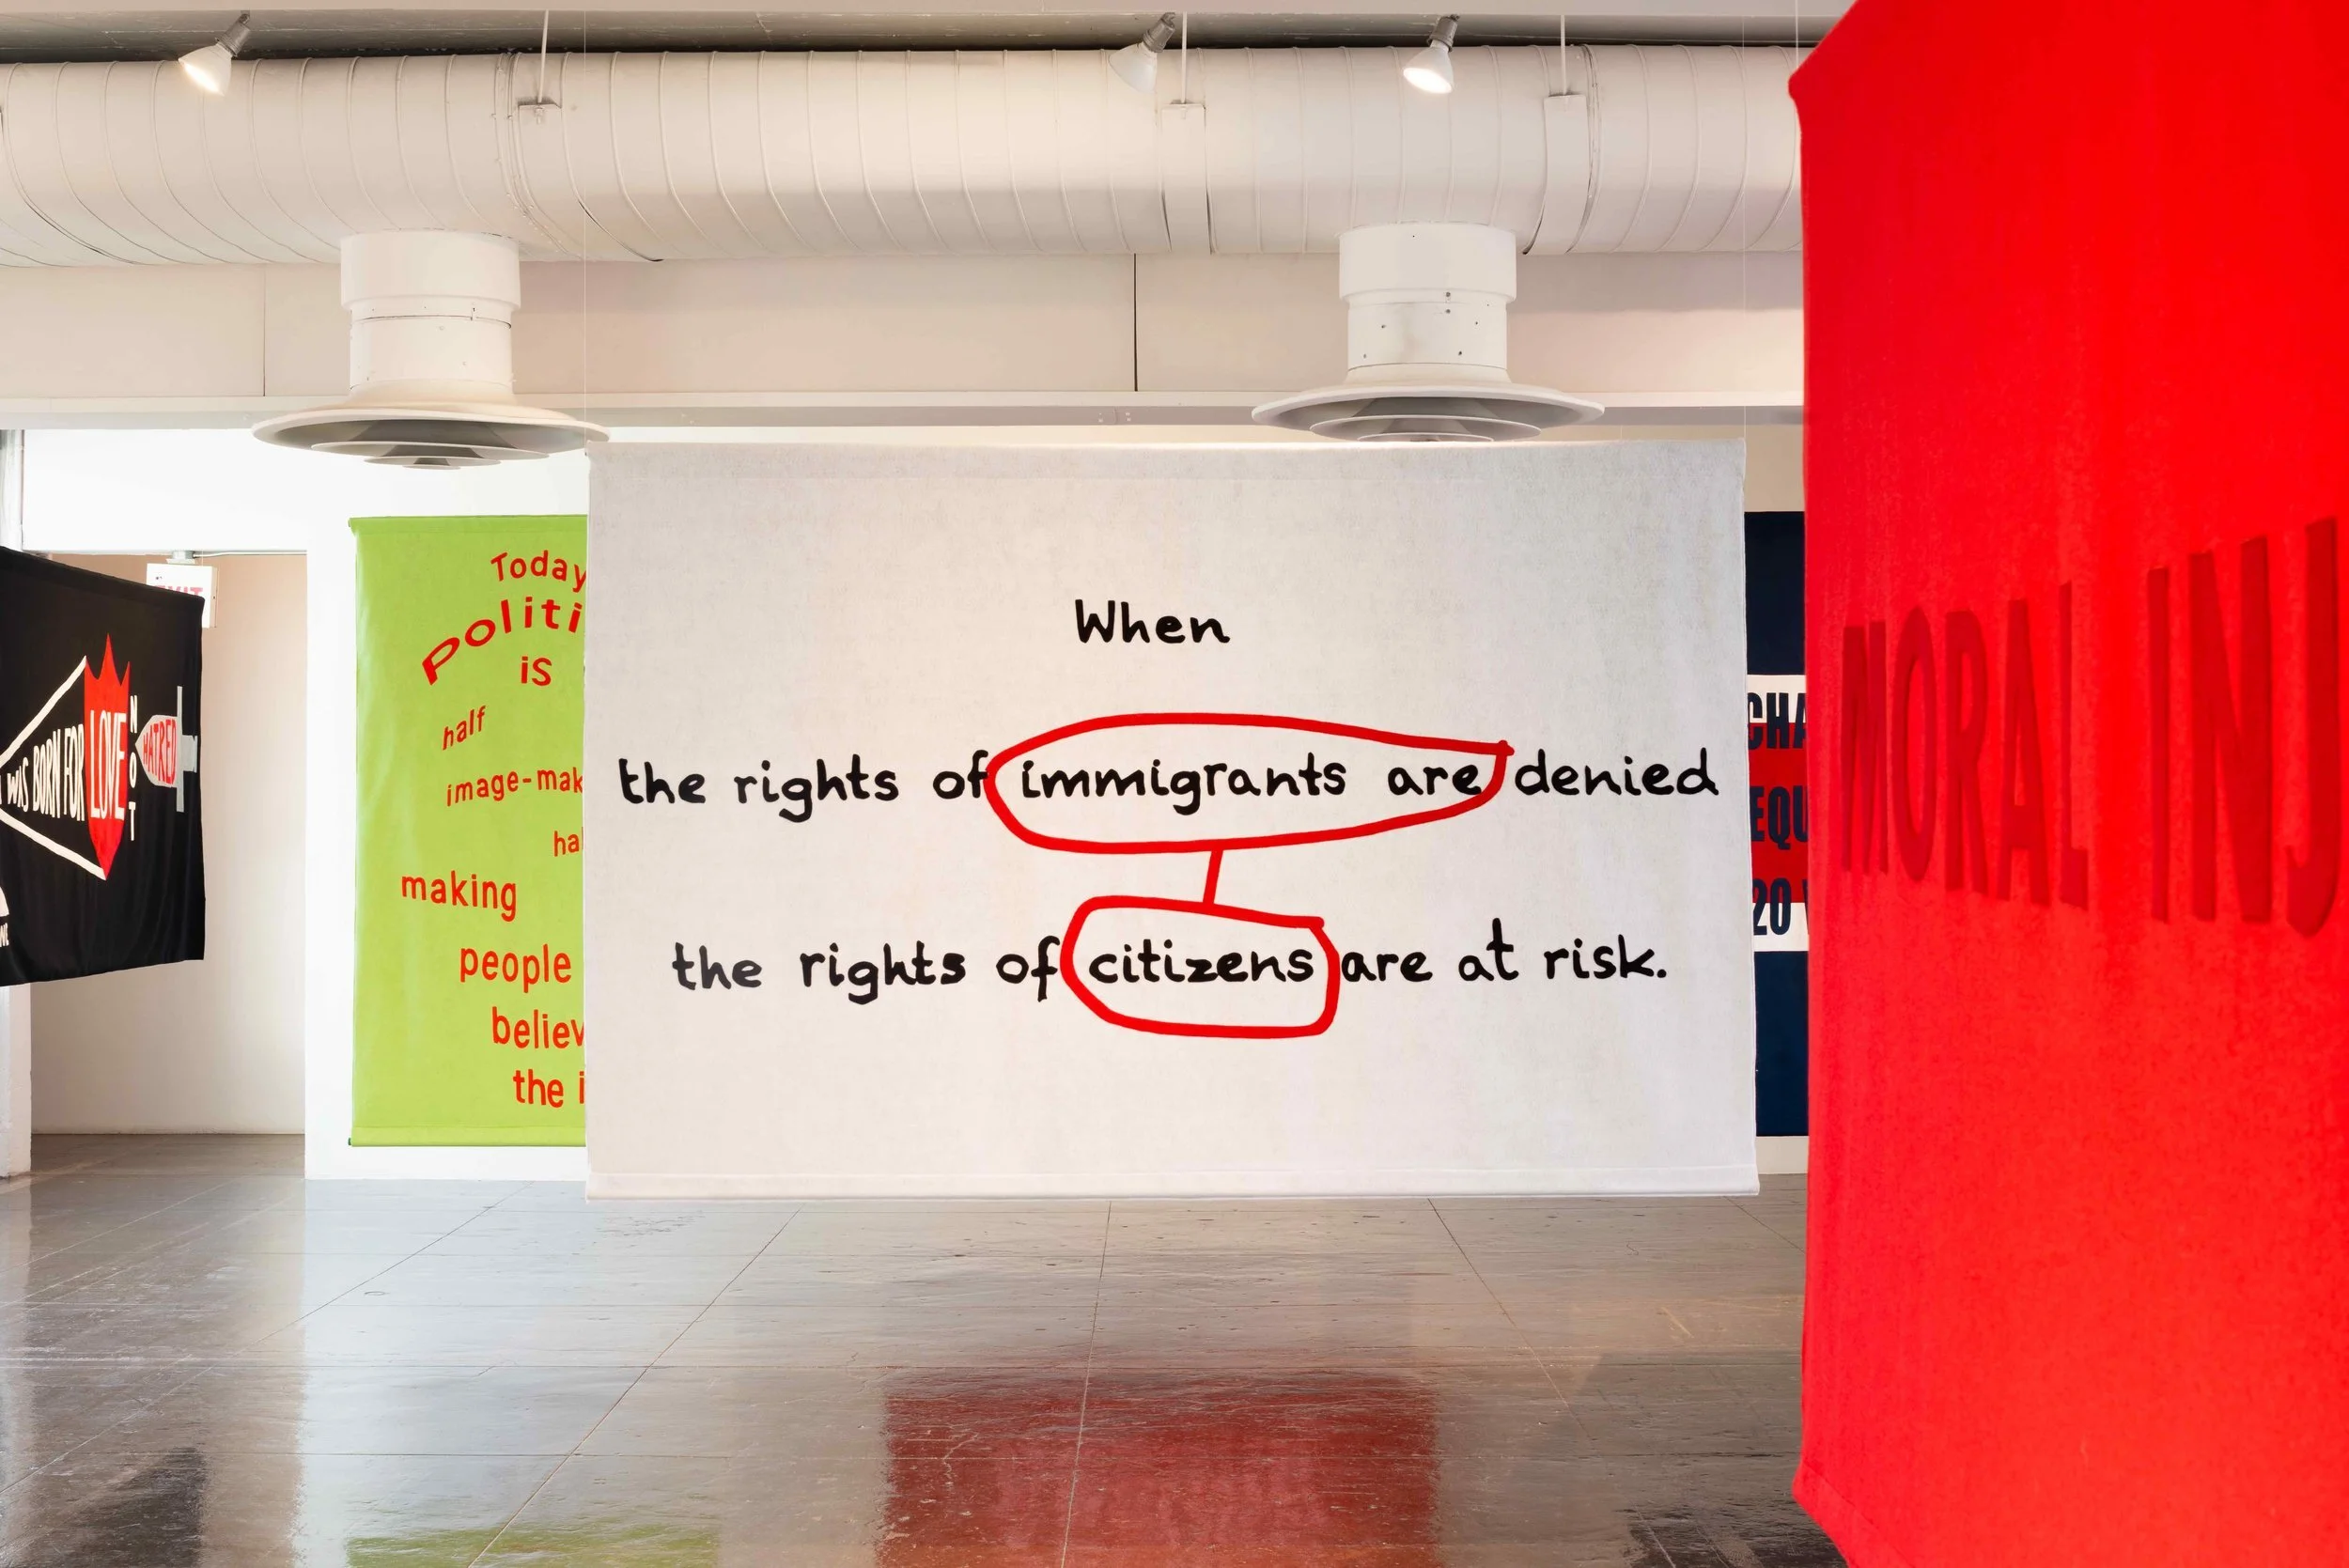 I WAS BORN FOR
LOVE
NOT
HATRED
EXIT
Today
politi
is
half
image-mak
hal
making
people
believ
the i
When
the rights of immigrants are denied
the rights of citizens are at risk.
CHA
EQU
20
MORAL INJ